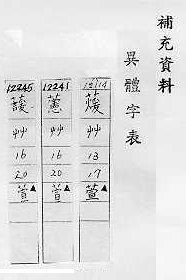 補充資料
異體字表
蕿
艸
13
17
萱▲
12241
藼
艸
16
20
萱▲
12245
蘐
艸
16
20
萱▲